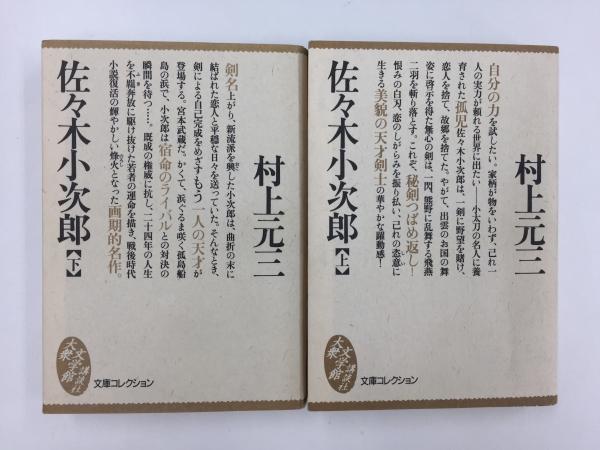 村上元三
剣名上がり、新流派を興した小次郎は、曲折の末に
結ばれた恋人と平穏な日々を送っていた。そんなとき、
剣による自己完成をめざすもう一人の天才が
登場する。宮本武蔵だ。かくて、浜ぐるま咲く孤島船
島の浜で、小次郎は宿命のライバルとの対決の
瞬間を待つ……。既成の権威に抗し、二十四年の人生
を不羈奔放に駆け抜けた若者の運命を描き、戦後時代
小説復活の輝やかしい烽火となった画期的名作。
佐々木小次郎【下】
講談社
大衆文学館
文庫コレクション
村上元三
自分の力を試したい。家柄が物をいわず、己れ一
人の実力が頼れる世界に出たい──小太刀の名人に養
育された孤児佐々木小次郎は、一剣に野望を賭け、
恋人を捨て、故郷を捨てた。やがて、出雲のお国の舞
姿に啓示を得た無心の剣は、一閃、熊野に乱舞する飛燕
二羽を斬り落とす。これぞ、秘剣つばめ返し！
恨みの白刃、恋のしがらみを振り払い、己れの恣意に
生きる美貌の天才剣士の華やかな躍動感！
佐々木小次郎【上】
講談社
大衆文学館
文庫コレクション